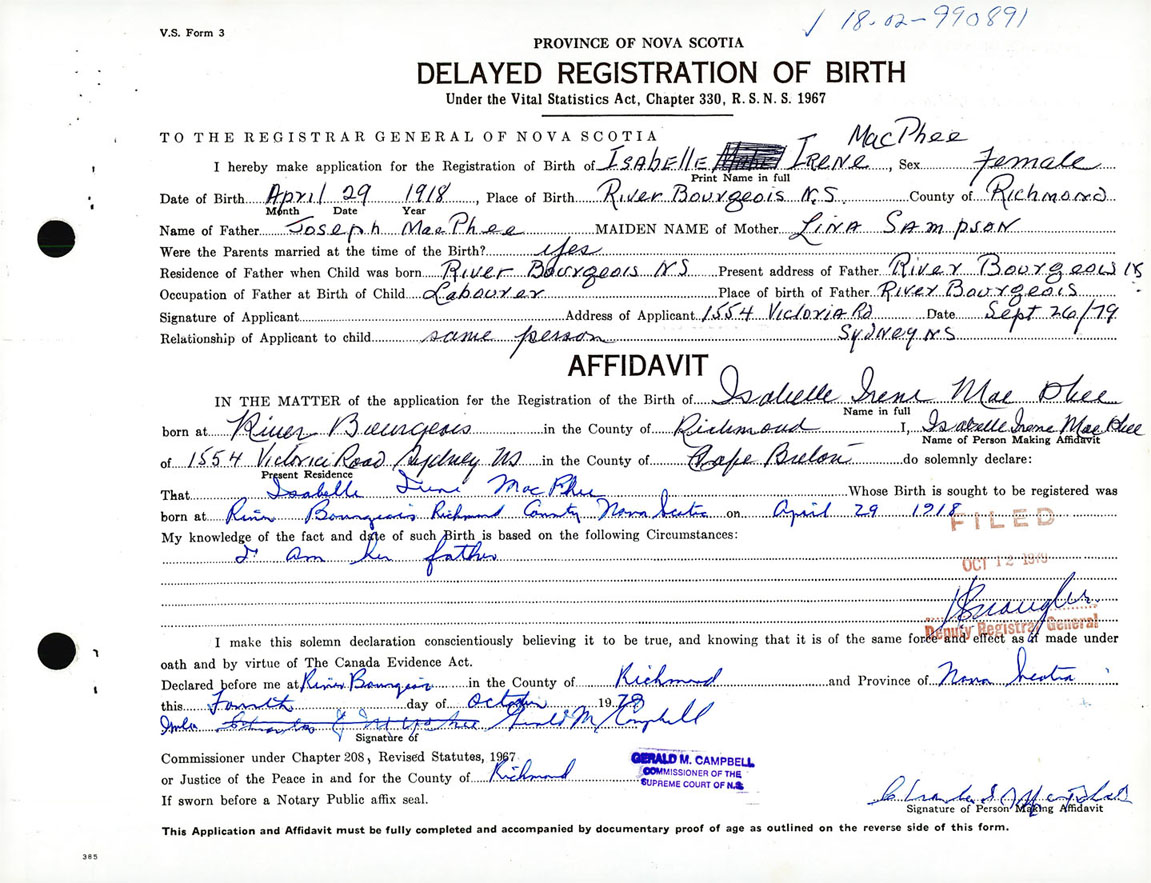 V.S. Form 3
18-02-990891
PROVINCE OF NOVA SCOTIA
DELAYED REGISTRATION OF BIRTH
Under the Vital Statistics Act, Chapter 330, R.S.N.S. 1967
TO THE REGISTRAR GENERAL OF NOVA SCOTIA
MacPhee
I hereby make application for the Registration of Birth of ISABELLE IRENE, Sex Female
Print Name in full
Date of Birth April 29 1918, Place of Birth River Bourgeois N.S. County of Richmond
Month Date Year
Name of Father Joseph MacPhee MAIDEN NAME of Mother LINA SAMPSON
Were the Parents married at the time of the Birth? yes
Residence of Father when Child was born River Bourgeois NS Present address of Father River Bourgeois
Occupation of Father at Birth of Child Labourer Place of birth of Father River Bourgeois
Signature of Applicant Address of Applicant 1554 Victoria Rd Date Sept 26/79
Relationship of Applicant to child same person Sydney NS
AFFIDAVIT
IN THE MATTER of the application for the Registration of the Birth of Isabelle Irene Mac Phee
Name in full
born at River Bourgeois in the County of Richmond I, Isabelle Irene MacPhee
Name of Person Making Affidavit
of 1554 Victoria Road Sydney NS in the County of Cape Breton do solemnly declare:
Present Residence
That Isabelle Irene MacPhee Whose Birth is sought to be registered was
born at River Bourgeois Richmond County Nova Scotia on April 29 1918
FILED
My knowledge of the fact and date of such Birth is based on the following Circumstances:
I am her father
OCT 12 1979
Deputy Registrar General
I make this solemn declaration conscientiously believing it to be true, and knowing that it is of the same force and effect as if made under
oath and by virtue of The Canada Evidence Act.
Declared before me at River Bourgeois in the County of Richmond and Province of Nova Scotia
this Fourth day of October 1979
Gerald M. Campbell
Signature of
Commissioner under Chapter 208, Revised Statutes, 1967
or Justice of the Peace in and for the County of Richmond
GERALD M. CAMPBELL
COMMISSIONER OF THE
SUPREME COURT OF N.S.
If sworn before a Notary Public affix seal.
Signature of Person Making Affidavit
This Application and Affidavit must be fully completed and accompanied by documentary proof of age as outlined on the reverse side of this form.
385